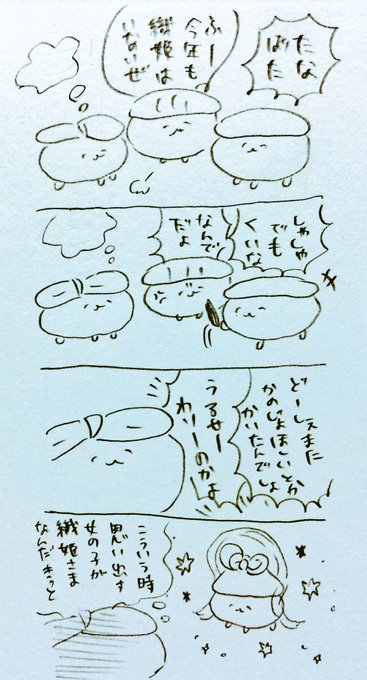 たな
ばた
ふー
今年も
織姫は
いないぜ
しゃしゃ
でも
くいな
なんで
だよ
どーしぇまた
かのじょほしいとか
かいたんでしょ
うるせー
わりーのかよ
こういう時
思い出す
女の子が
織姫さま
なんだきっと